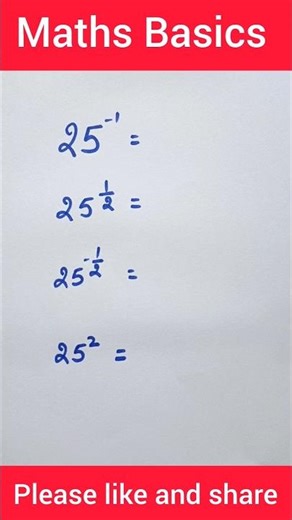 Maths Basics
25⁻¹ =
25^(1/2) =
25^(-1/2) =
25² =
Please like and share